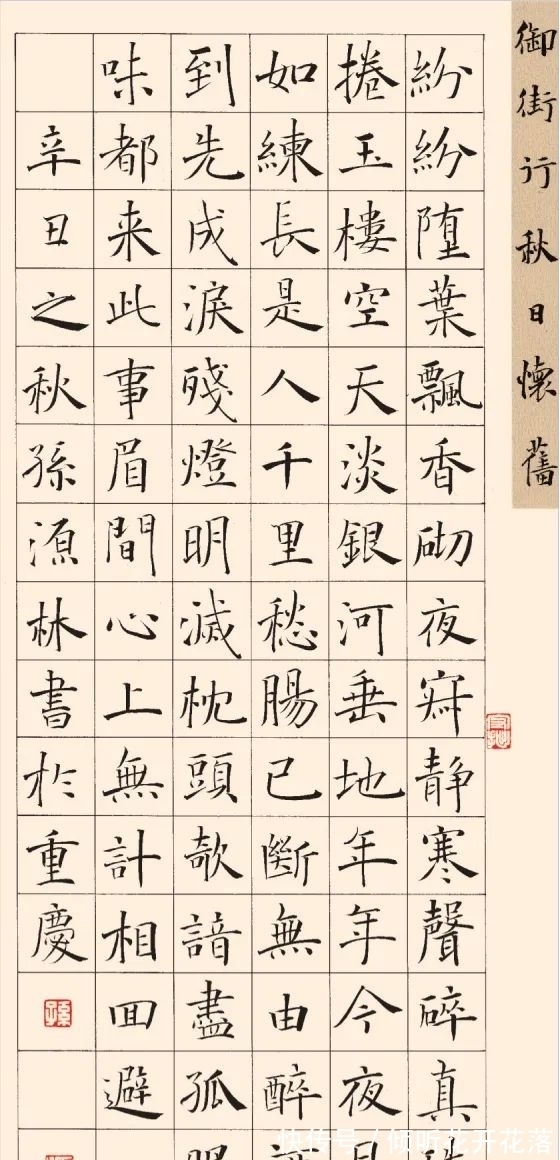 御街行秋日懷舊
紛紛堕葉飄香砌夜寂静寒聲碎真
捲玉樓空天淡銀河垂地年年今夜
如練長是人千里愁腸已斷無由醉
到先成淚殘燈明滅枕頭欹諳盡孤
味都来此事眉間心上無計相回避
辛丑之秋孫源林書於重慶
快传号 / 倾听花开花落